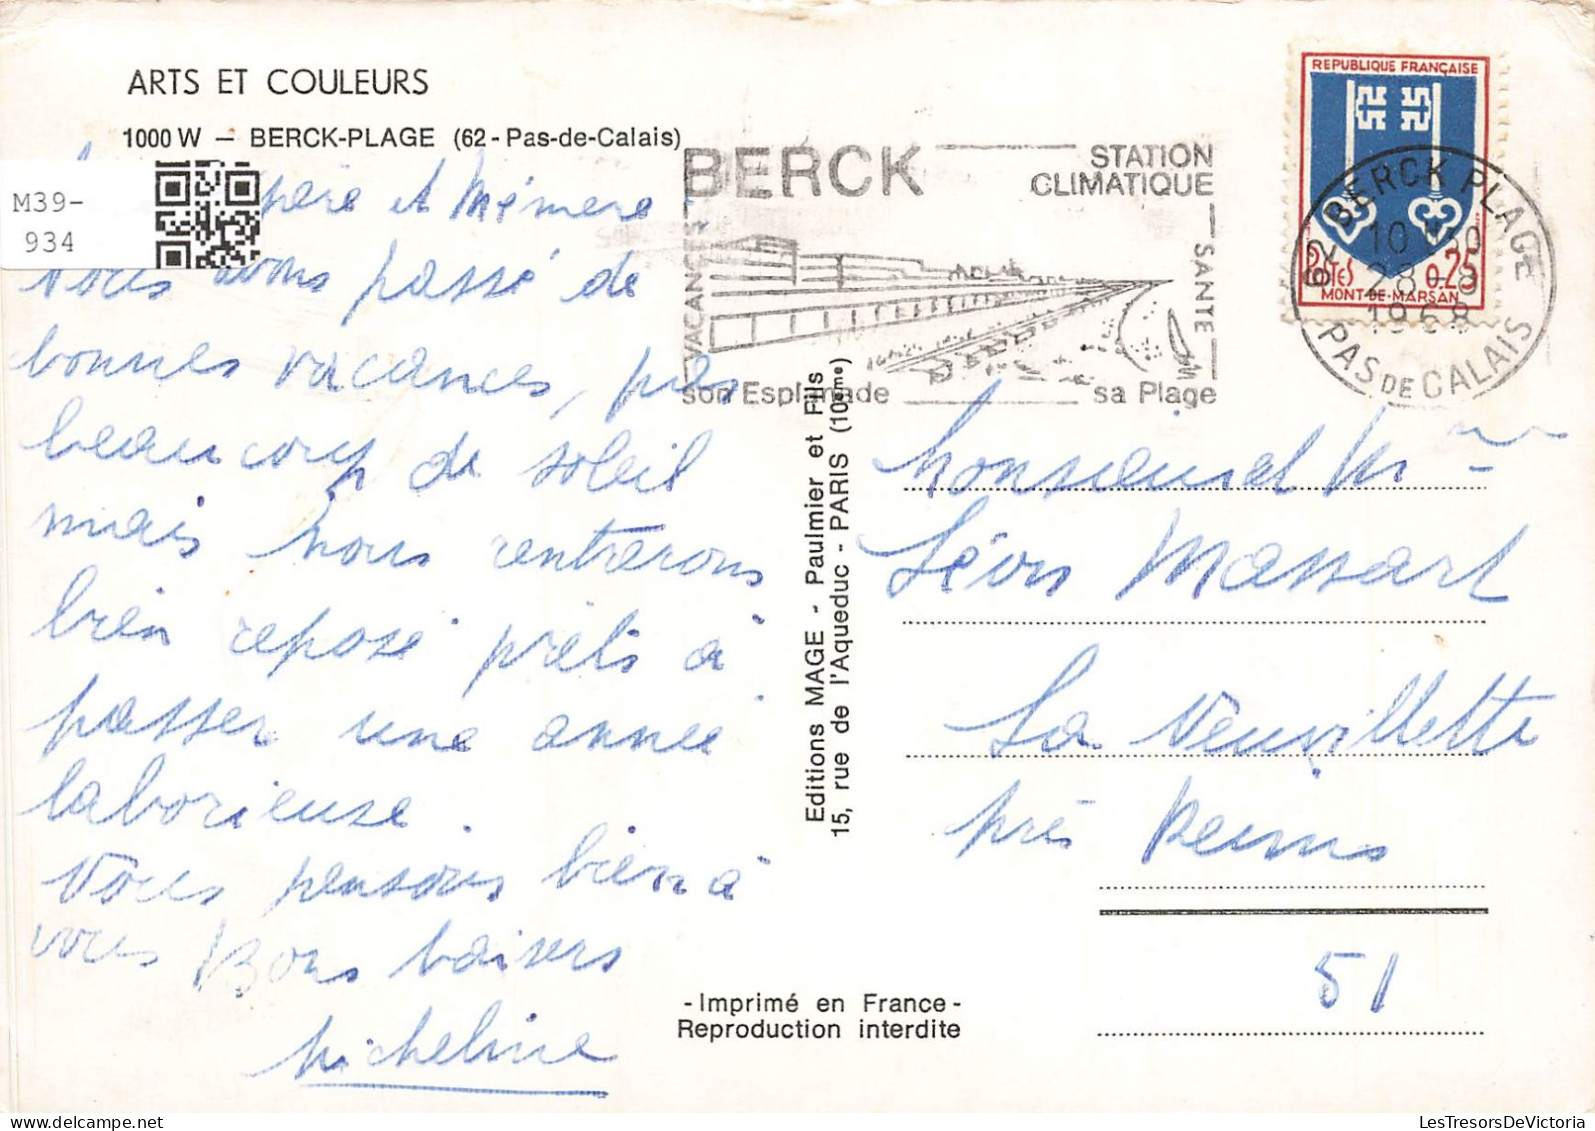 ARTS ET COULEURS
1000 W — BERCK-PLAGE (62 - Pas-de-Calais)
M39-
934
père et Mémère
Nous avons passé de
bonnes vacances, pas
beaucoup de soleil
mais nous rentrerons
bien reposé prêts à
passer une année
laborieuse.
Nous pensons bien à
vous Bons baisers
Micheline
BERCK
STATION
CLIMATIQUE
VACANCES
SANTE
son Esplanade
sa Plage
REPUBLIQUE FRANÇAISE
POSTES 0,25
MONT-DE-MARSAN
62 BERCK PLAGE
10 H30
28-8
1968
PAS DE CALAIS
Editions MAGE - Paulmier et Fils
15, rue de l'Aqueduc - PARIS (10eme)
Monsieur et Mme
Léon Massart
La Neuvillette
près Reims
51
- Imprimé en France -
Reproduction interdite
LesTresorsDeVictoria